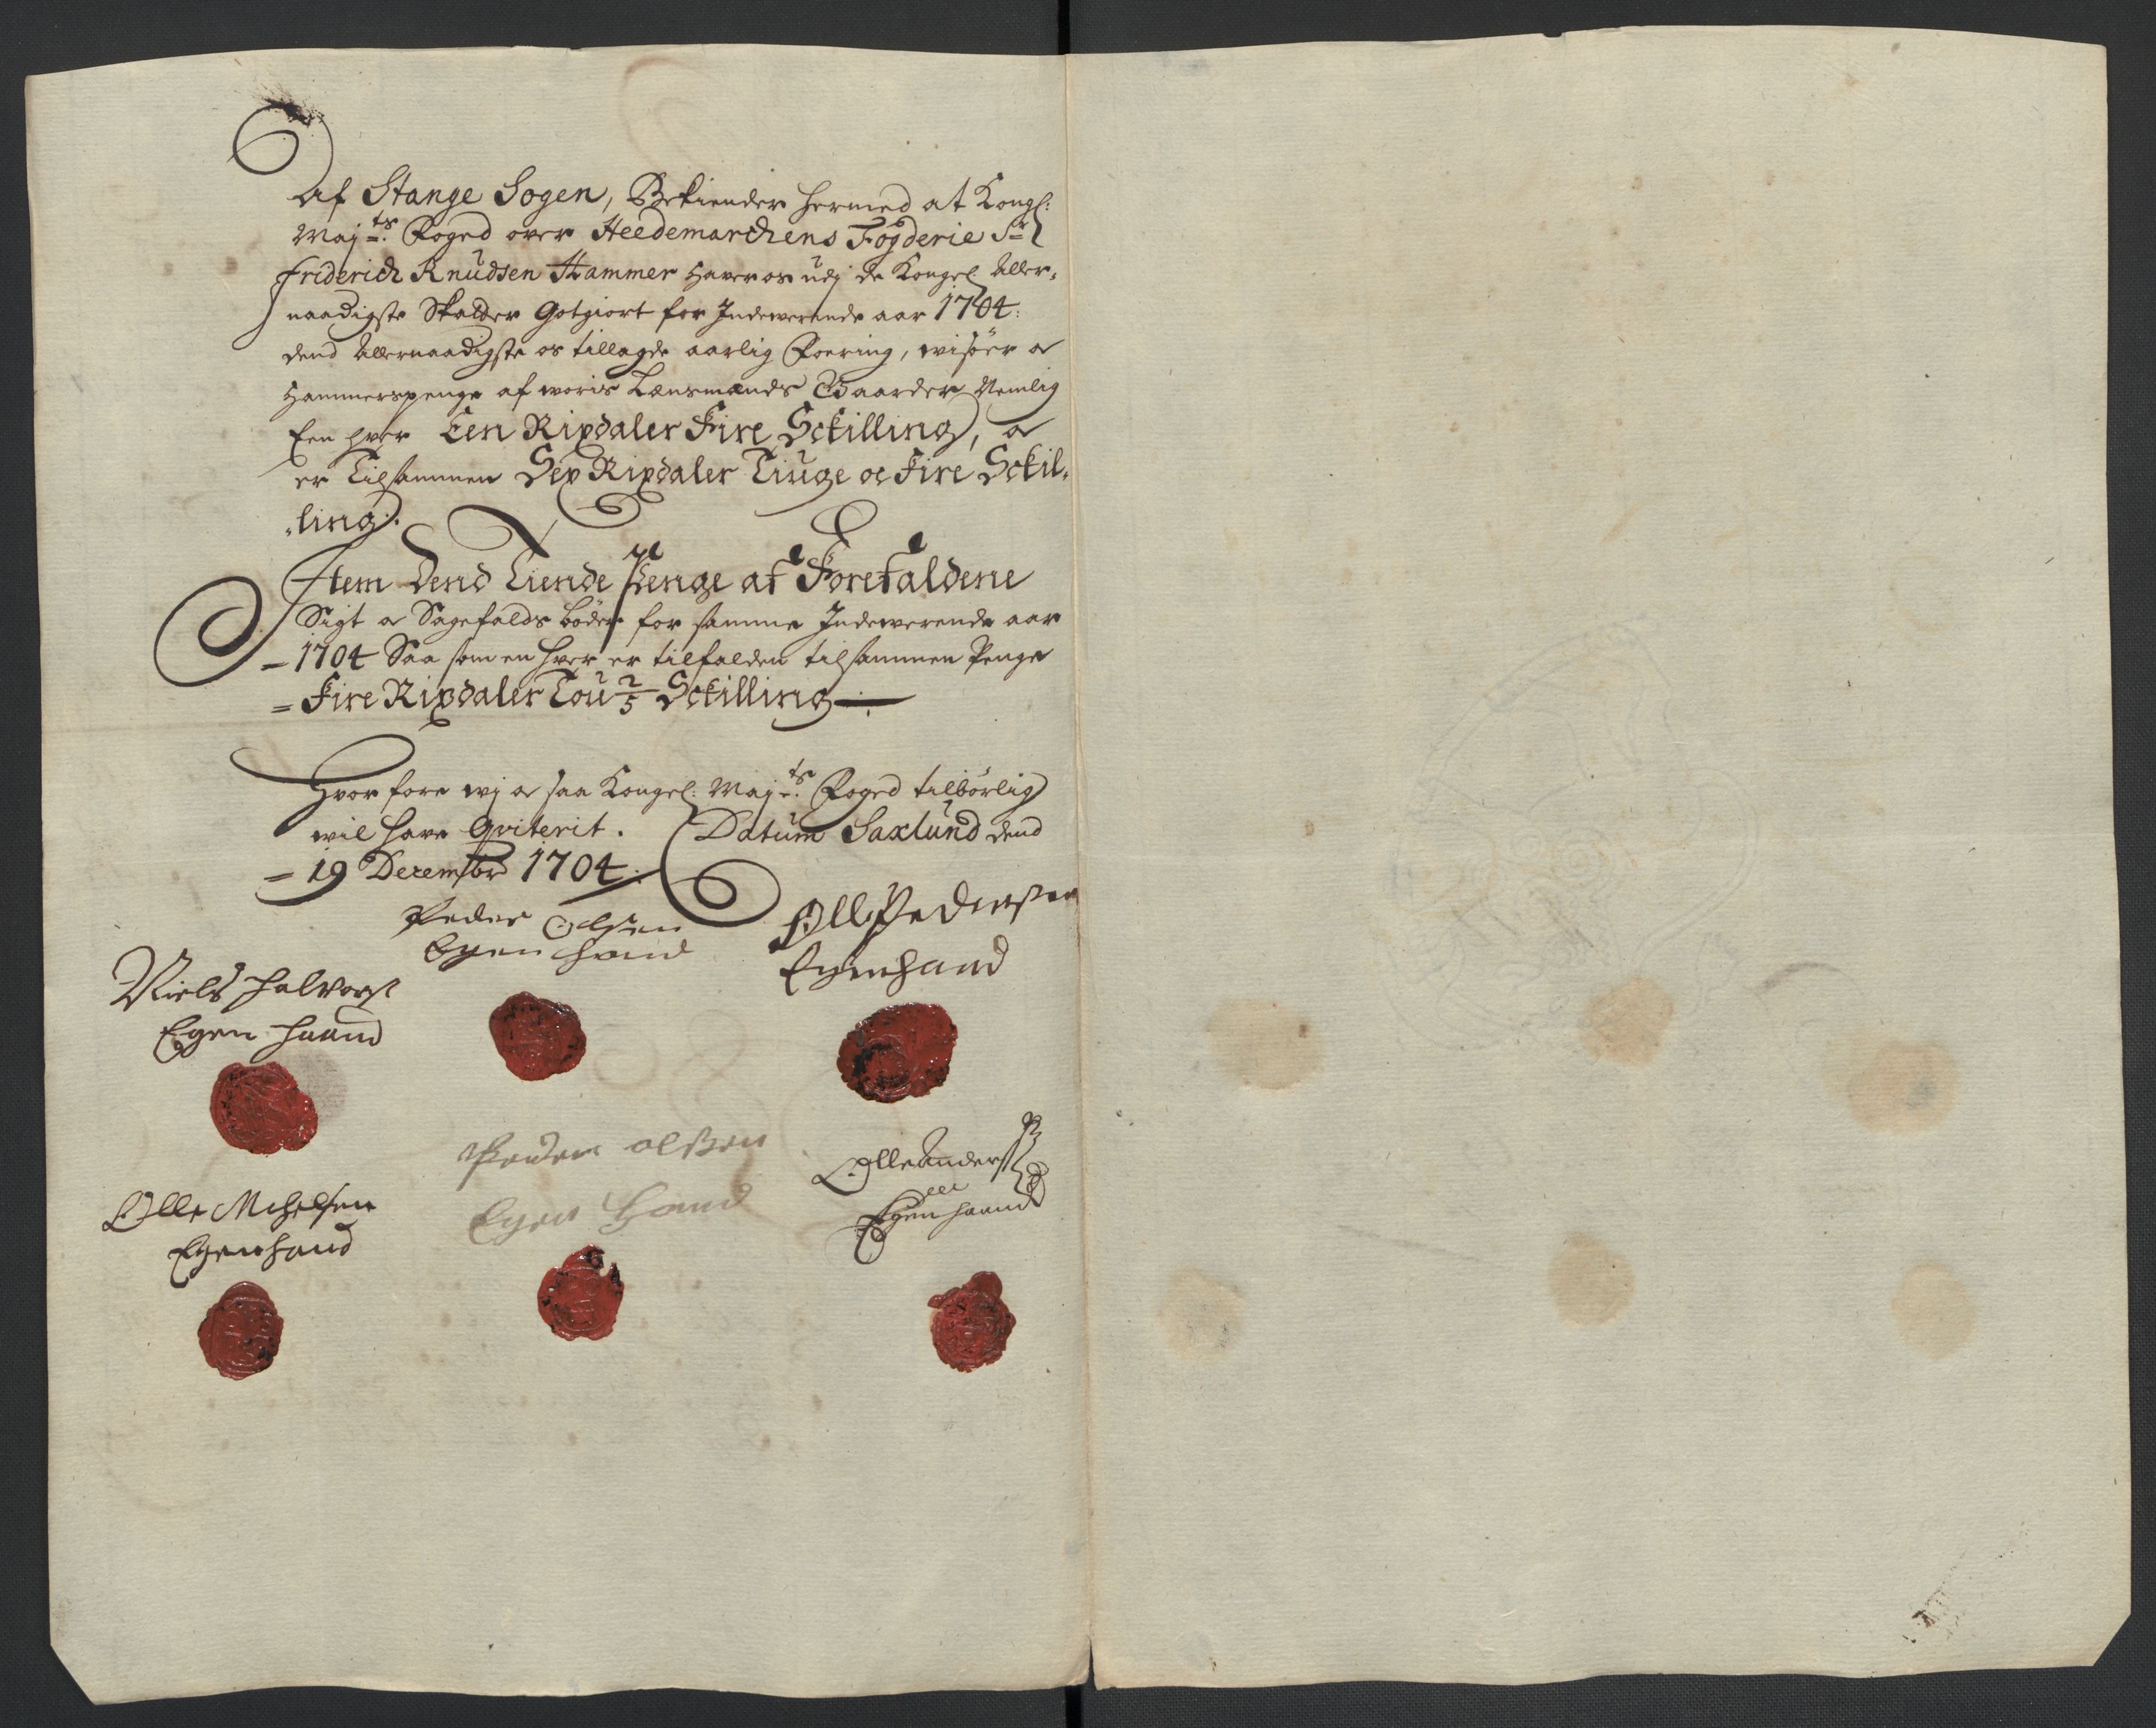 Af Stange Sogen, Bekiender hermed at Kongl:
Maj:ts Foged over Heedemarchens Fogderie Sr
Friderich Knudsen Hammer haver os udj de Kongel Aller,
naadigste Skatter Gotgiort for Indeverende aar 1704:
dend Allernaadigste os tillagde aarlig Foering, wisöer oc
Hammerspenge af woris Lænsmænds Gaarder Nemlig
Een hver Een Rixdaler Fire Sckilling, oc
er Tilsammen Sex Rixdaler Tiuge oc Fire Sckil,
,ling.
Item Dend Tiende Penge af Forefaldene
Sigt oc Sagefalds böder for samme Indeverende aar
1704 Saa som en hver er tilfalden tilsammen Penge
Fire Rixdaler Tou 2/5 Sckilling
Hvor fore wj oc saa Kongel: Maj:ts Foged tilbörlig
wil have Qviterit. Datum Saxlund dend
19 Decembr 1704.
Peder Olsen
Egen hand
Oll Pedersen
Egenhand
Niels Halvors
Egen haand
Peder olssen
Egen Hand
Olle Anders
Egen haand
Olle Michelsen
Egenhand